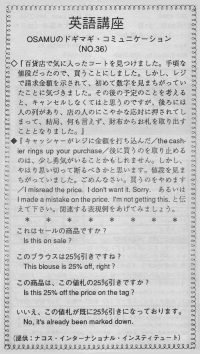 英語講座
OSAMUのドギマギ・コミュニケーション
(NO.36)
◇『百貨店で気に入ったコートを見つけました。手頃な
値段だったので、買うことにしました。しかし、レジ
で請求金額を示されて、初めて数字を見まちがってい
たことに気づきました。その後の予定のことを考える
と、キャンセルしなくてはと思うのですが、後ろには
人の列があり、店の人のにこやかな応対に押されてし
まって、結局、何も言えず、財布からお札を取り出す
こととなりました。』
◆『キャッシャーがレジに金額を打ち込んだ／the cash-
ier rings up your purchase／後に買うのを取り止める
のは、少し勇気がいることかもしれません。しかし、
やはり思い切って断るべきかと思います。値段を見ま
ちがっていました。ごめんなさい。買うのをやめます
／I misread the price. I don't want it. Sorry. あるいは
I made a mistake on the price. I'm not getting this. と伝
えて下さい。関連する表現例をあげてみましょう。
＊ ＊ ＊ ＊ ＊ ＊ ＊ ＊
これはセールの商品ですか？
Is this on sale ?
このブラウスは25％引きですね？
This blouse is 25% off, right ?
この商品は、この値札の25％引きですか？
Is this 25% off the price on the tag ?
いいえ、この値札が既に25％引きになっております。
No, it's already been marked down.
（提供：ナコス・インターナショナル・インスティテュート）